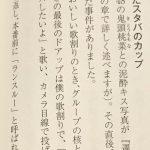 たスタバのカップ
の鬼頭桃菜との泥酔キス写真が『週
の章で詳しく述べますが）。その直後
た事件がありました。
おいしい歌割りのとき、グループの核と
の最後のドアップは僕の歌割りで、「
したいよ」と歌い、カメラ目線で投げ
返し、本番前に「ランスルー」と呼ば